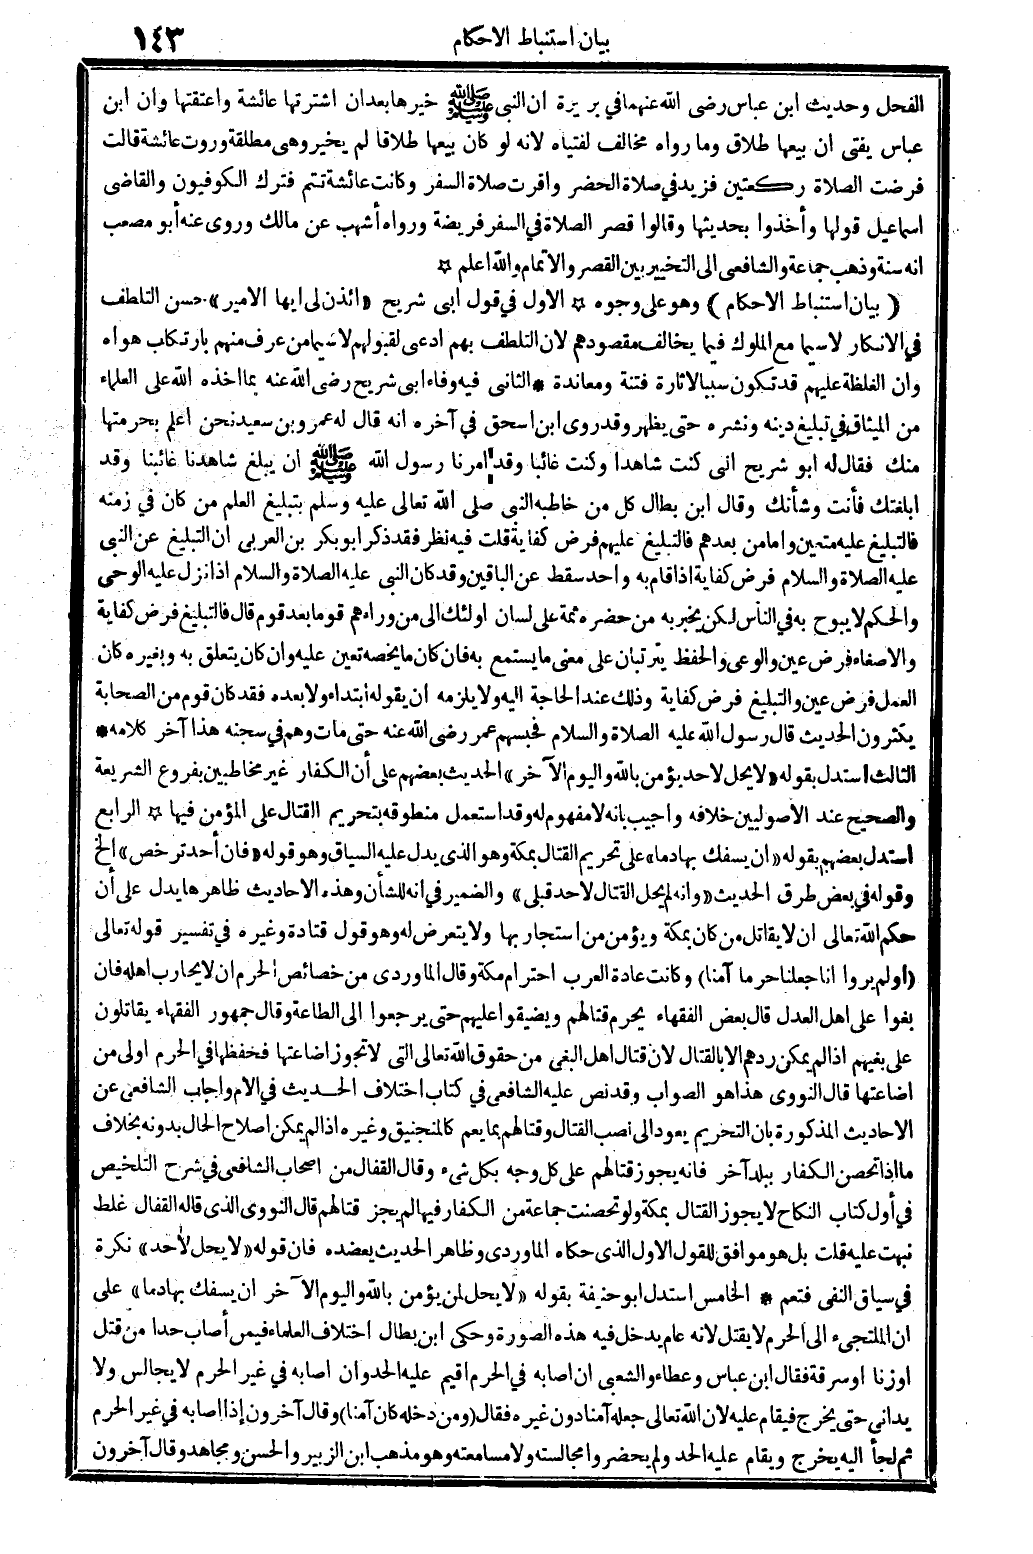 بيان استنباط الاحكام ١٤٣
الفحل وحديث ابن عباس رضى الله عنهما فى بريرة ان النبى ﷺ خيرها بعد ان اشترتها عائشة واعتقتها وان ابن
عباس يفتى ان بيعها طلاق وما رواه مخالف لفتياه لانه لو كان بيعها طلاقا لم يخير وهى مطلقة وروت عائشة قالت
فرضت الصلاة ركعتين فزيد فى صلاة الحضر واقرت صلاة السفر وكانت عائشة تتم فترك الكوفيون والقاضى
اسماعيل قولها وأخذوا بحديثها وقالوا قصر الصلاة فى السفر فريضة ورواه أشهب عن مالك وروى عنه أبو مصعب
انه سنة وذهب جماعة والشافعى الى التخيير بين القصر والاتمام والله اعلم ☆
( بيان استنباط الاحكام ) وهو على وجوه ☆ الاول فى قول ابى شريح «ائذن لى ايها الامير» حسن التلطف
فى الانكار لاسيما مع الملوك فيما يخالف مقصودهم لان التلطف بهم ادعى لقبولهم لاسيما من عرف منهم بارتكاب هواه
وان الغلظة عليهم قد تكون سببا لاثارة فتنة ومعاندة * الثانى فيه وفاء ابى شريح رضى الله عنه بما اخذه الله على العلماء
من الميثاق فى تبليغ دينه ونشره حتى يظهر وقد روى ابن اسحق فى آخره انه قال له عمرو بن سعيد نحن اعلم بحرمتها
منك فقال له ابو شريح انى كنت شاهدا وكنت غائبا وقد امرنا رسول الله ﷺ ان يبلغ شاهدنا غائبنا وقد
ابلغتك فأنت وشأنك وقال ابن بطال كل من خاطبه النبى صلى الله تعالى عليه وسلم بتبليغ العلم من كان فى زمنه
فالتبليغ عليه متعين واما من بعدهم فالتبليغ عليهم فرض كفاية قلت فيه نظر فقد ذكر ابو بكر بن العربى ان التبليغ عن النبى
عليه الصلاة والسلام فرض كفاية اذا قام به واحد سقط عن الباقين وقد كان النبى عليه الصلاة والسلام اذا نزل عليه الوحى
والحكم لا يبوح به فى الناس لكن يخبر به من حضره ثمة على لسان اولئك الى من وراءهم قوما بعد قوم قال فالتبليغ فرض كفاية
والاصغاء فرض عين والوعى والحفظ يترتبان على معنى ما يستمع به فان كان ما يخصه تعين عليه وان كان يتعلق به وبغيره كان
العمل فرض عين والتبليغ فرض كفاية وذلك عند الحاجة اليه ولا يلزمه ان يقوله ابتداء ولا بعده فقد كان قوم من الصحابة
يكثرون الحديث قال رسول الله عليه الصلاة والسلام فحبسهم عمر رضى الله عنه حتى مات وهم فى سجنه هذا آخر كلامه *
الثالث استدل بقوله «لا يحل لاحد يؤمن بالله واليوم الآخر» الحديث بعضهم على أن الكفار غير مخاطبين بفروع الشريعة
والصحيح عند الأصوليين خلافه واجيب بانه لا مفهوم له وقد استعمل منطوقه بتحريم القتال على المؤمن فيها ☆ الرابع
استدل بعضهم بقوله «ان يسفك بها دما» على تحريم القتال بمكة وهو الذى يدل عليه السياق وهو قوله «فان أحد ترخص» الخ
وقوله فى بعض طرق الحديث «وانه لم يحل القتال لاحد قبلى» والضمير فى انه للشأن وهذه الاحاديث ظاهرها يدل على أن
حكم الله تعالى ان لا يقاتل من كان بمكة ويؤمن من استجار بها ولا يتعرض له وهو قول قتادة وغيره فى تفسير قوله تعالى
(أولم يروا انا جعلنا حرما آمنا) وكانت عادة العرب احترام مكة وقال الماوردى من خصائص الحرم ان لا يحارب اهله فان
بغوا على اهل العدل قال بعض الفقهاء يحرم قتالهم ويضيقوا عليهم حتى يرجعوا الى الطاعة وقال جمهور الفقهاء يقاتلون
على بغيهم اذا لم يمكن ردهم الا بالقتال لان قتال اهل البغى من حقوق الله تعالى التى لا تجوز اضاعتها فحفظها فى الحرم اولى من
اضاعتها قال النووى هذا هو الصواب وقد نص عليه الشافعى فى كتاب اختلاف الحديث فى الام واجاب الشافعى عن
الاحاديث المذكورة بان التحريم يعود الى نصب القتال وقتالهم بما يعم كالمنجنيق وغيره اذا لم يمكن اصلاح الحال بدونه بخلاف
ما اذا تحصن الكفار ببلد آخر فانه يجوز قتالهم على كل وجه بكل شىء وقال القفال من اصحاب الشافعى فى شرح التلخيص
فى أول كتاب النكاح لا يجوز القتال بمكة ولو تحصنت جماعة من الكفار فيها لم يجز قتالهم قال النووى الذى قاله القفال غلط
نبهت عليه قلت بل هو موافق للقول الاول الذى حكاه الماوردى وظاهر الحديث يعضده فان قوله «لا يحل لأحد» نكرة
فى سياق النفى فتعم * الخامس استدل ابو حنيفة بقوله «لا يحل لمن يؤمن بالله واليوم الآخر ان يسفك بها دما» على
ان الملتجىء الى الحرم لا يقتل لانه عام يدخل فيه هذه الصورة وحكى ابن بطال اختلاف العلماء فيمن أصاب حدا من قتل
اوزنا او سرقة فقال ابن عباس وعطاء والشعبى ان اصابه فى الحرم اقيم عليه الحد وان اصابه فى غير الحرم لا يجالس ولا
يدانى حتى يخرج فيقام عليه لان الله تعالى جعله آمنا دون غيره فقال (ومن دخله كان آمنا) وقال آخرون إذا اصابه فى غير الحرم
ثم لجأ اليه يخرج ويقام عليه الحد ولم يحضروا مجالسته ولا مسامعته وهو مذهب ابن الزبير والحسن ومجاهد وقال آخرون